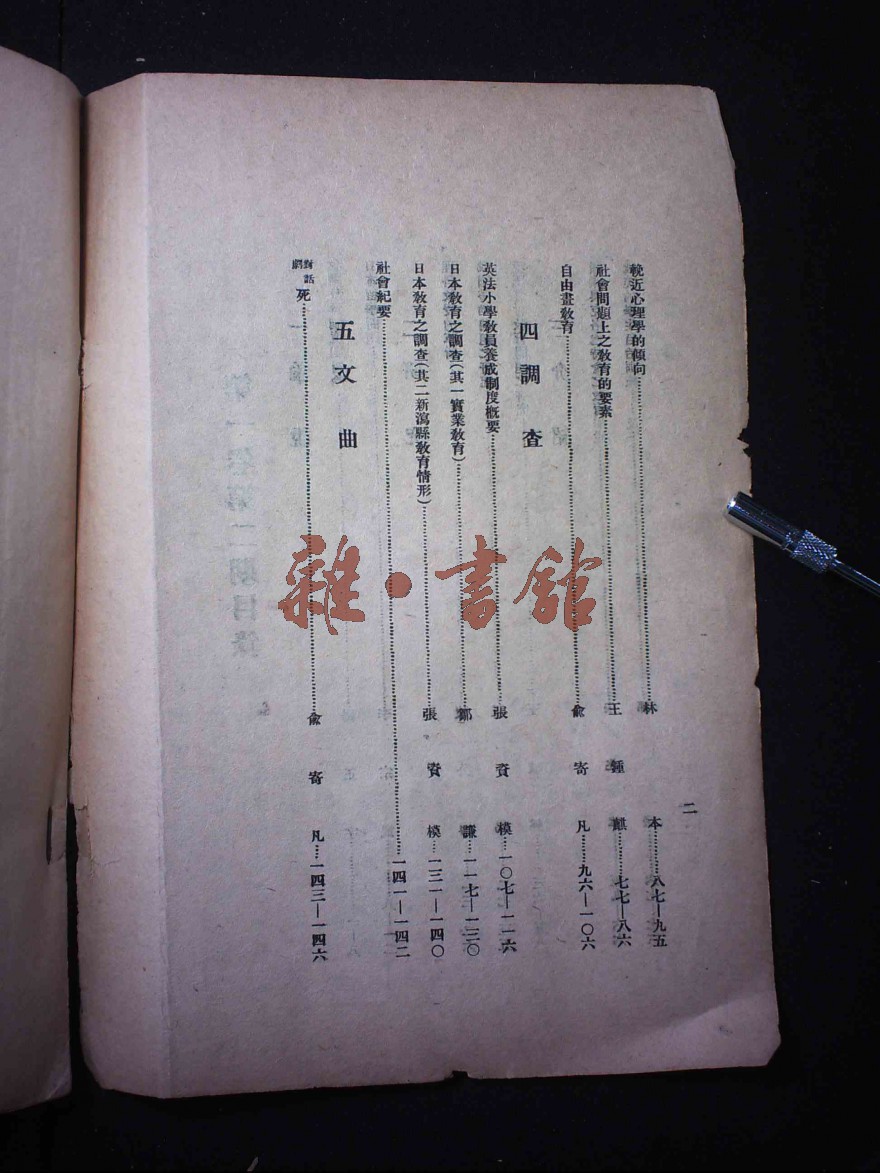 二
輓近心理學的傾向…林 本…八七—九五
社會問題上之敎育的要素…王 鍾 麒…七七—八六
自由畫敎育…兪 寄 凡…九六—一〇六
四 調 査
英法小學敎員養成制度概要…張 資 模…一〇七—一一六
日本敎育之調査(其一實業敎育)…鄒 謙…一一七—一三〇
日本敎育之調査(其二新瀉縣敎育情形)…張 資 模…一三一—一四〇
社會紀要…一四一—一四二
五 文 曲
對話劇 死…兪 寄 凡…一四三—一四六
雜·書館